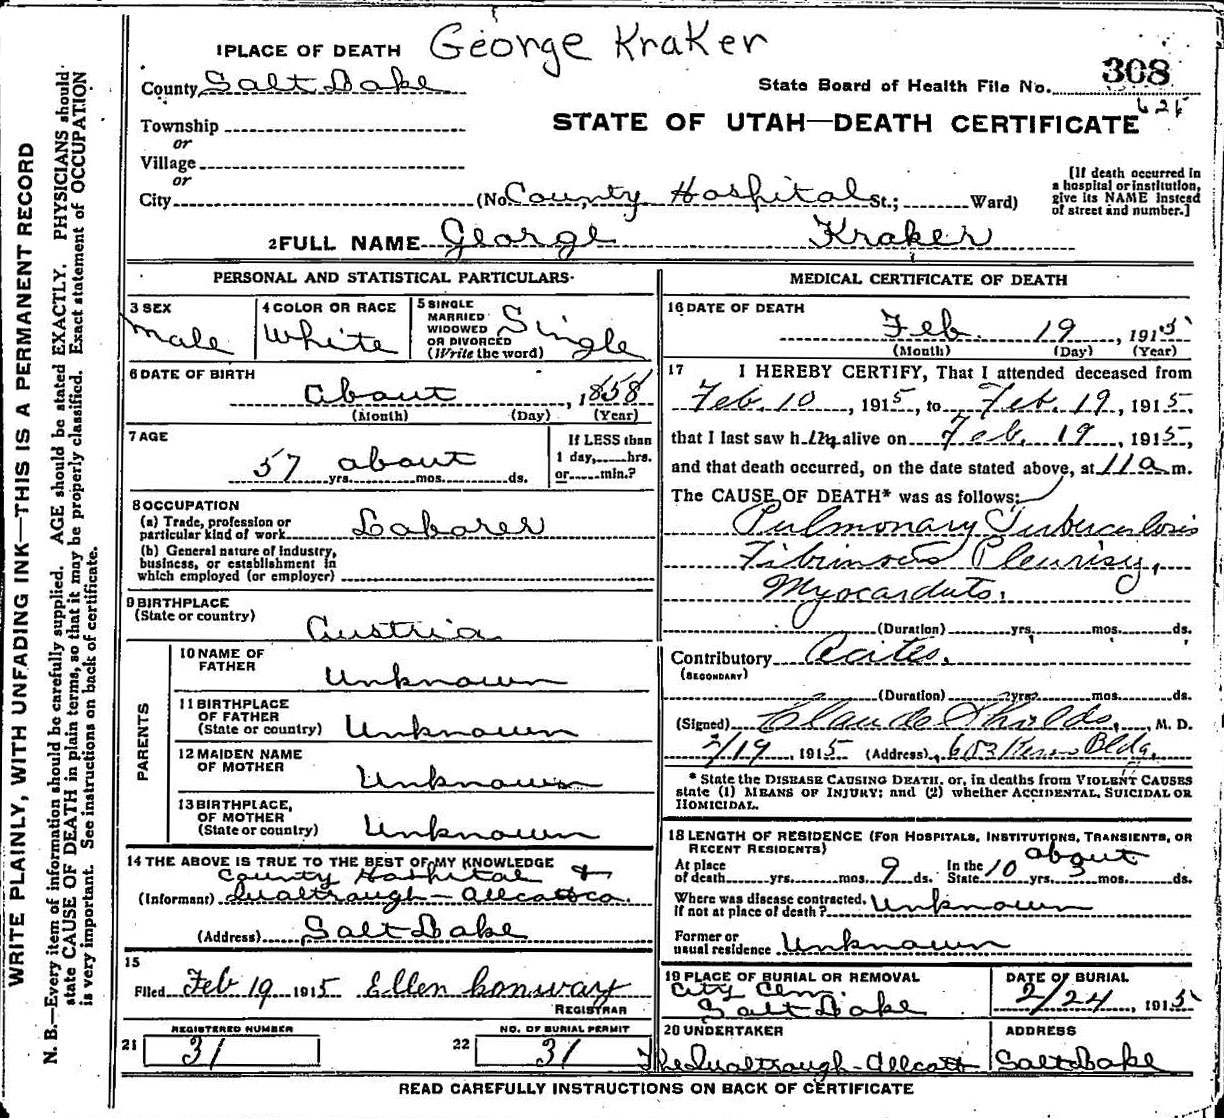 George Kraker
1 PLACE OF DEATH
County Salt Lake
State Board of Health File No. 308
625
Township
or
Village
or
City
STATE OF UTAH—DEATH CERTIFICATE
(No. County Hospital St.; Ward)
[If death occurred in
a hospital or institution,
give its NAME instead
of street and number.]
2 FULL NAME George Kraker
PERSONAL AND STATISTICAL PARTICULARS
3 SEX
Male
4 COLOR OR RACE
White
5 SINGLE
MARRIED
WIDOWED
OR DIVORCED
(Write the word)
Single
6 DATE OF BIRTH
About, 1858
(Month) (Day) (Year)
7 AGE
57 about
yrs. mos. ds.
If LESS than
1 day, hrs.
or min.?
8 OCCUPATION
(a) Trade, profession or
particular kind of work Laborer
(b) General nature of Industry,
business, or establishment in
which employed (or employer)
9 BIRTHPLACE
(State or country)
Austria
PARENTS
10 NAME OF
FATHER
Unknown
11 BIRTHPLACE
OF FATHER
(State or country) Unknown
12 MAIDEN NAME
OF MOTHER
Unknown
13 BIRTHPLACE,
OF MOTHER
(State or country) Unknown
14 THE ABOVE IS TRUE TO THE BEST OF MY KNOWLEDGE
County Hospital &
(Informant)
(Address) Salt Lake
15
Filed Feb 19 1915 Ellen Conway
REGISTRAR
REGISTERED NUMBER
21 31
NO. OF BURIAL PERMIT
22 31
MEDICAL CERTIFICATE OF DEATH
16 DATE OF DEATH
Feb. 19, 1915
(Month) (Day) (Year)
17 I HEREBY CERTIFY, That I attended deceased from
Feb. 10, 1915, to Feb. 19, 1915,
that I last saw him alive on Feb. 19, 1915,
and that death occurred, on the date stated above, at 11 a m.
The CAUSE OF DEATH* was as follows:
Pulmonary Tuberculosis
Fibrinous Pleurisy,
(Duration) yrs. mos. ds.
Contributory
(SECONDARY)
(Duration) yrs. mos. ds.
(Signed) Claude Shields, M. D.
2/19, 1915 (Address) 603 Bldg.
* State the DISEASE CAUSING DEATH, or, in deaths from VIOLENT CAUSES
state (1) MEANS OF INJURY; and (2) whether ACCIDENTAL, SUICIDAL OR
HOMICIDAL.
18 LENGTH OF RESIDENCE (FOR HOSPITALS, INSTITUTIONS, TRANSIENTS, OR
RECENT RESIDENTS)
about
At place
of death yrs. mos. 9 ds.
In the
State 10 yrs. 3 mos. ds.
Where was disease contracted,
If not at place of death? Unknown
Former or
usual residence Unknown
19 PLACE OF BURIAL OR REMOVAL
City Cem.
Salt Lake
DATE OF BURIAL
2/24, 1915
20 UNDERTAKER
The
ADDRESS
Salt Lake
READ CAREFULLY INSTRUCTIONS ON BACK OF CERTIFICATE
WRITE PLAINLY, WITH UNFADING INK—THIS IS A PERMANENT RECORD
N. B.—Every item of information should be carefully supplied. AGE should be stated EXACTLY. PHYSICIANS should
state CAUSE OF DEATH in plain terms, so that it may be properly classified. Exact statement of OCCUPATION
is very important. See instructions on back of certificate.